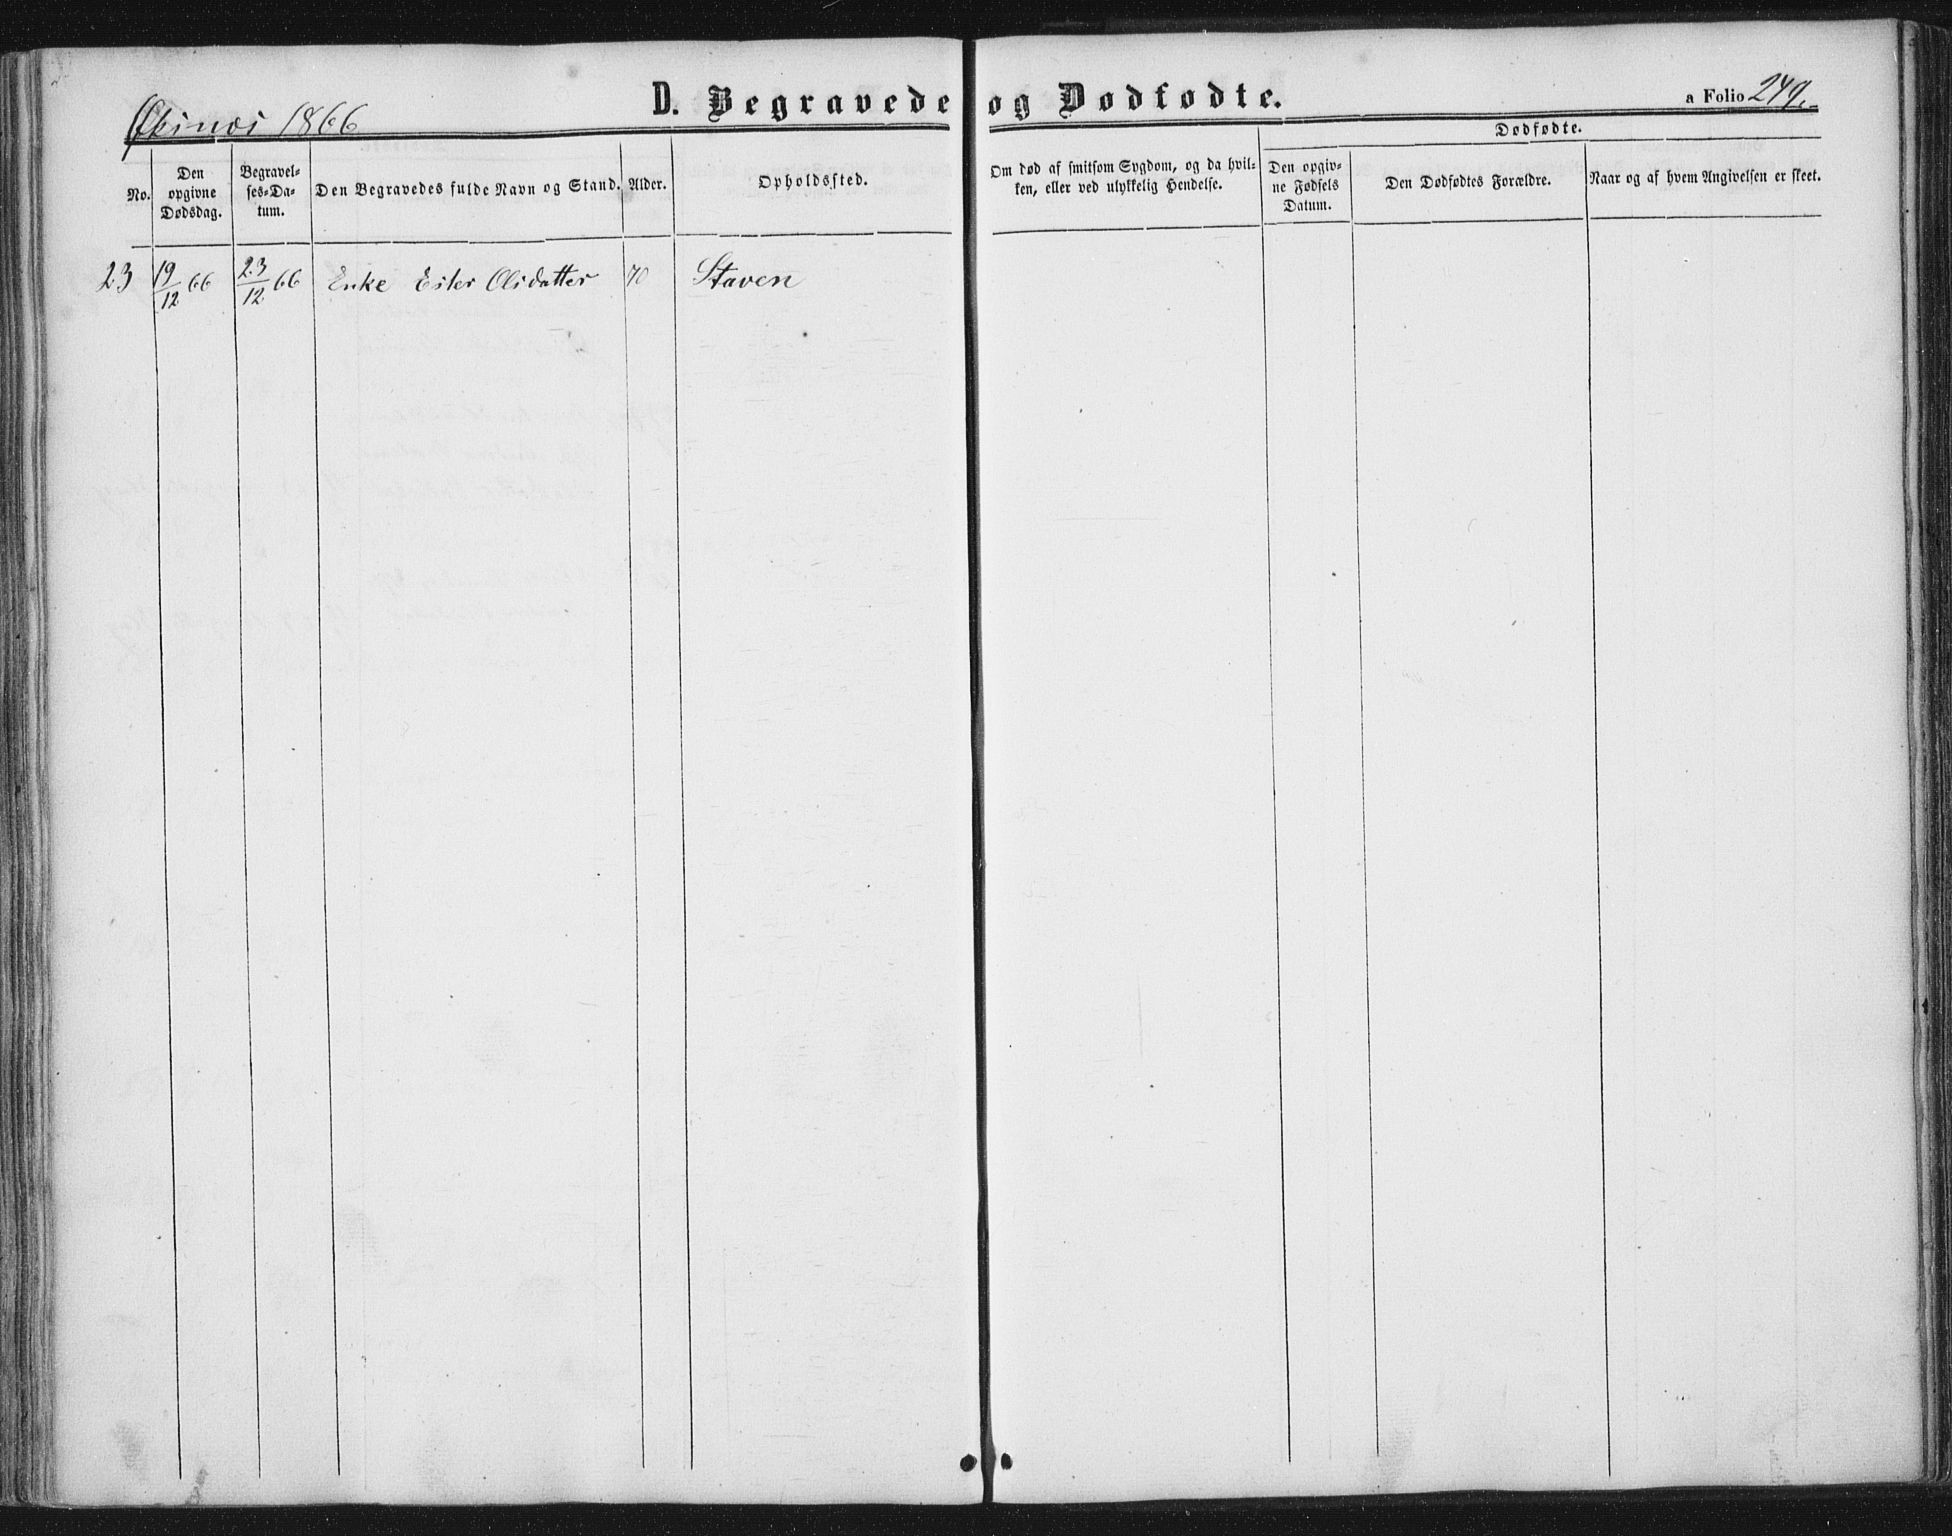 Øksnæs 1866
D. Begravede og Dødfødte.
a Folio 249.
No.
Den opgivne Dødsdag.
Begravel-ses-Da-tum.
Den Begravedes fulde Navn og Stand.
Alder.
Opholdssted.
Om død af smitsom Sygdom, og da hvil-
ken, eller ved ulykkelig Hendelse.
Dødfødte.
Den opgiv-ne Fødsels Datum.
Den Dødfødtes Forældre.
Naar og af hvem Angivelsen er skeet.
23 19/12 66 23/12 66 Enke Ester Olsdatter 70 Staven